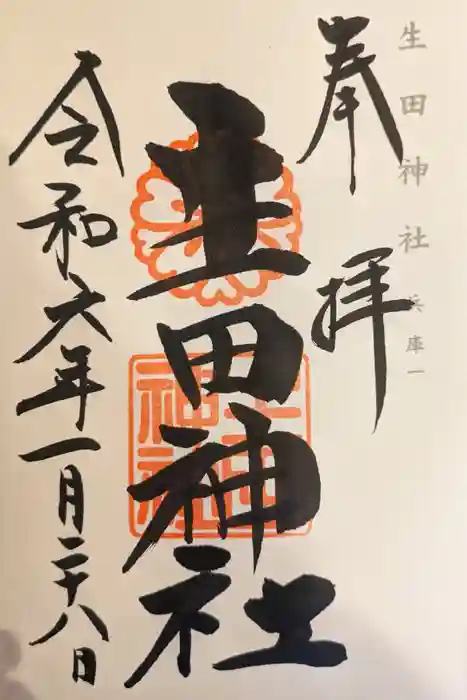 生田神社 兵庫一
奉拝
生田神社
生田神社
令和六年一月二十八日